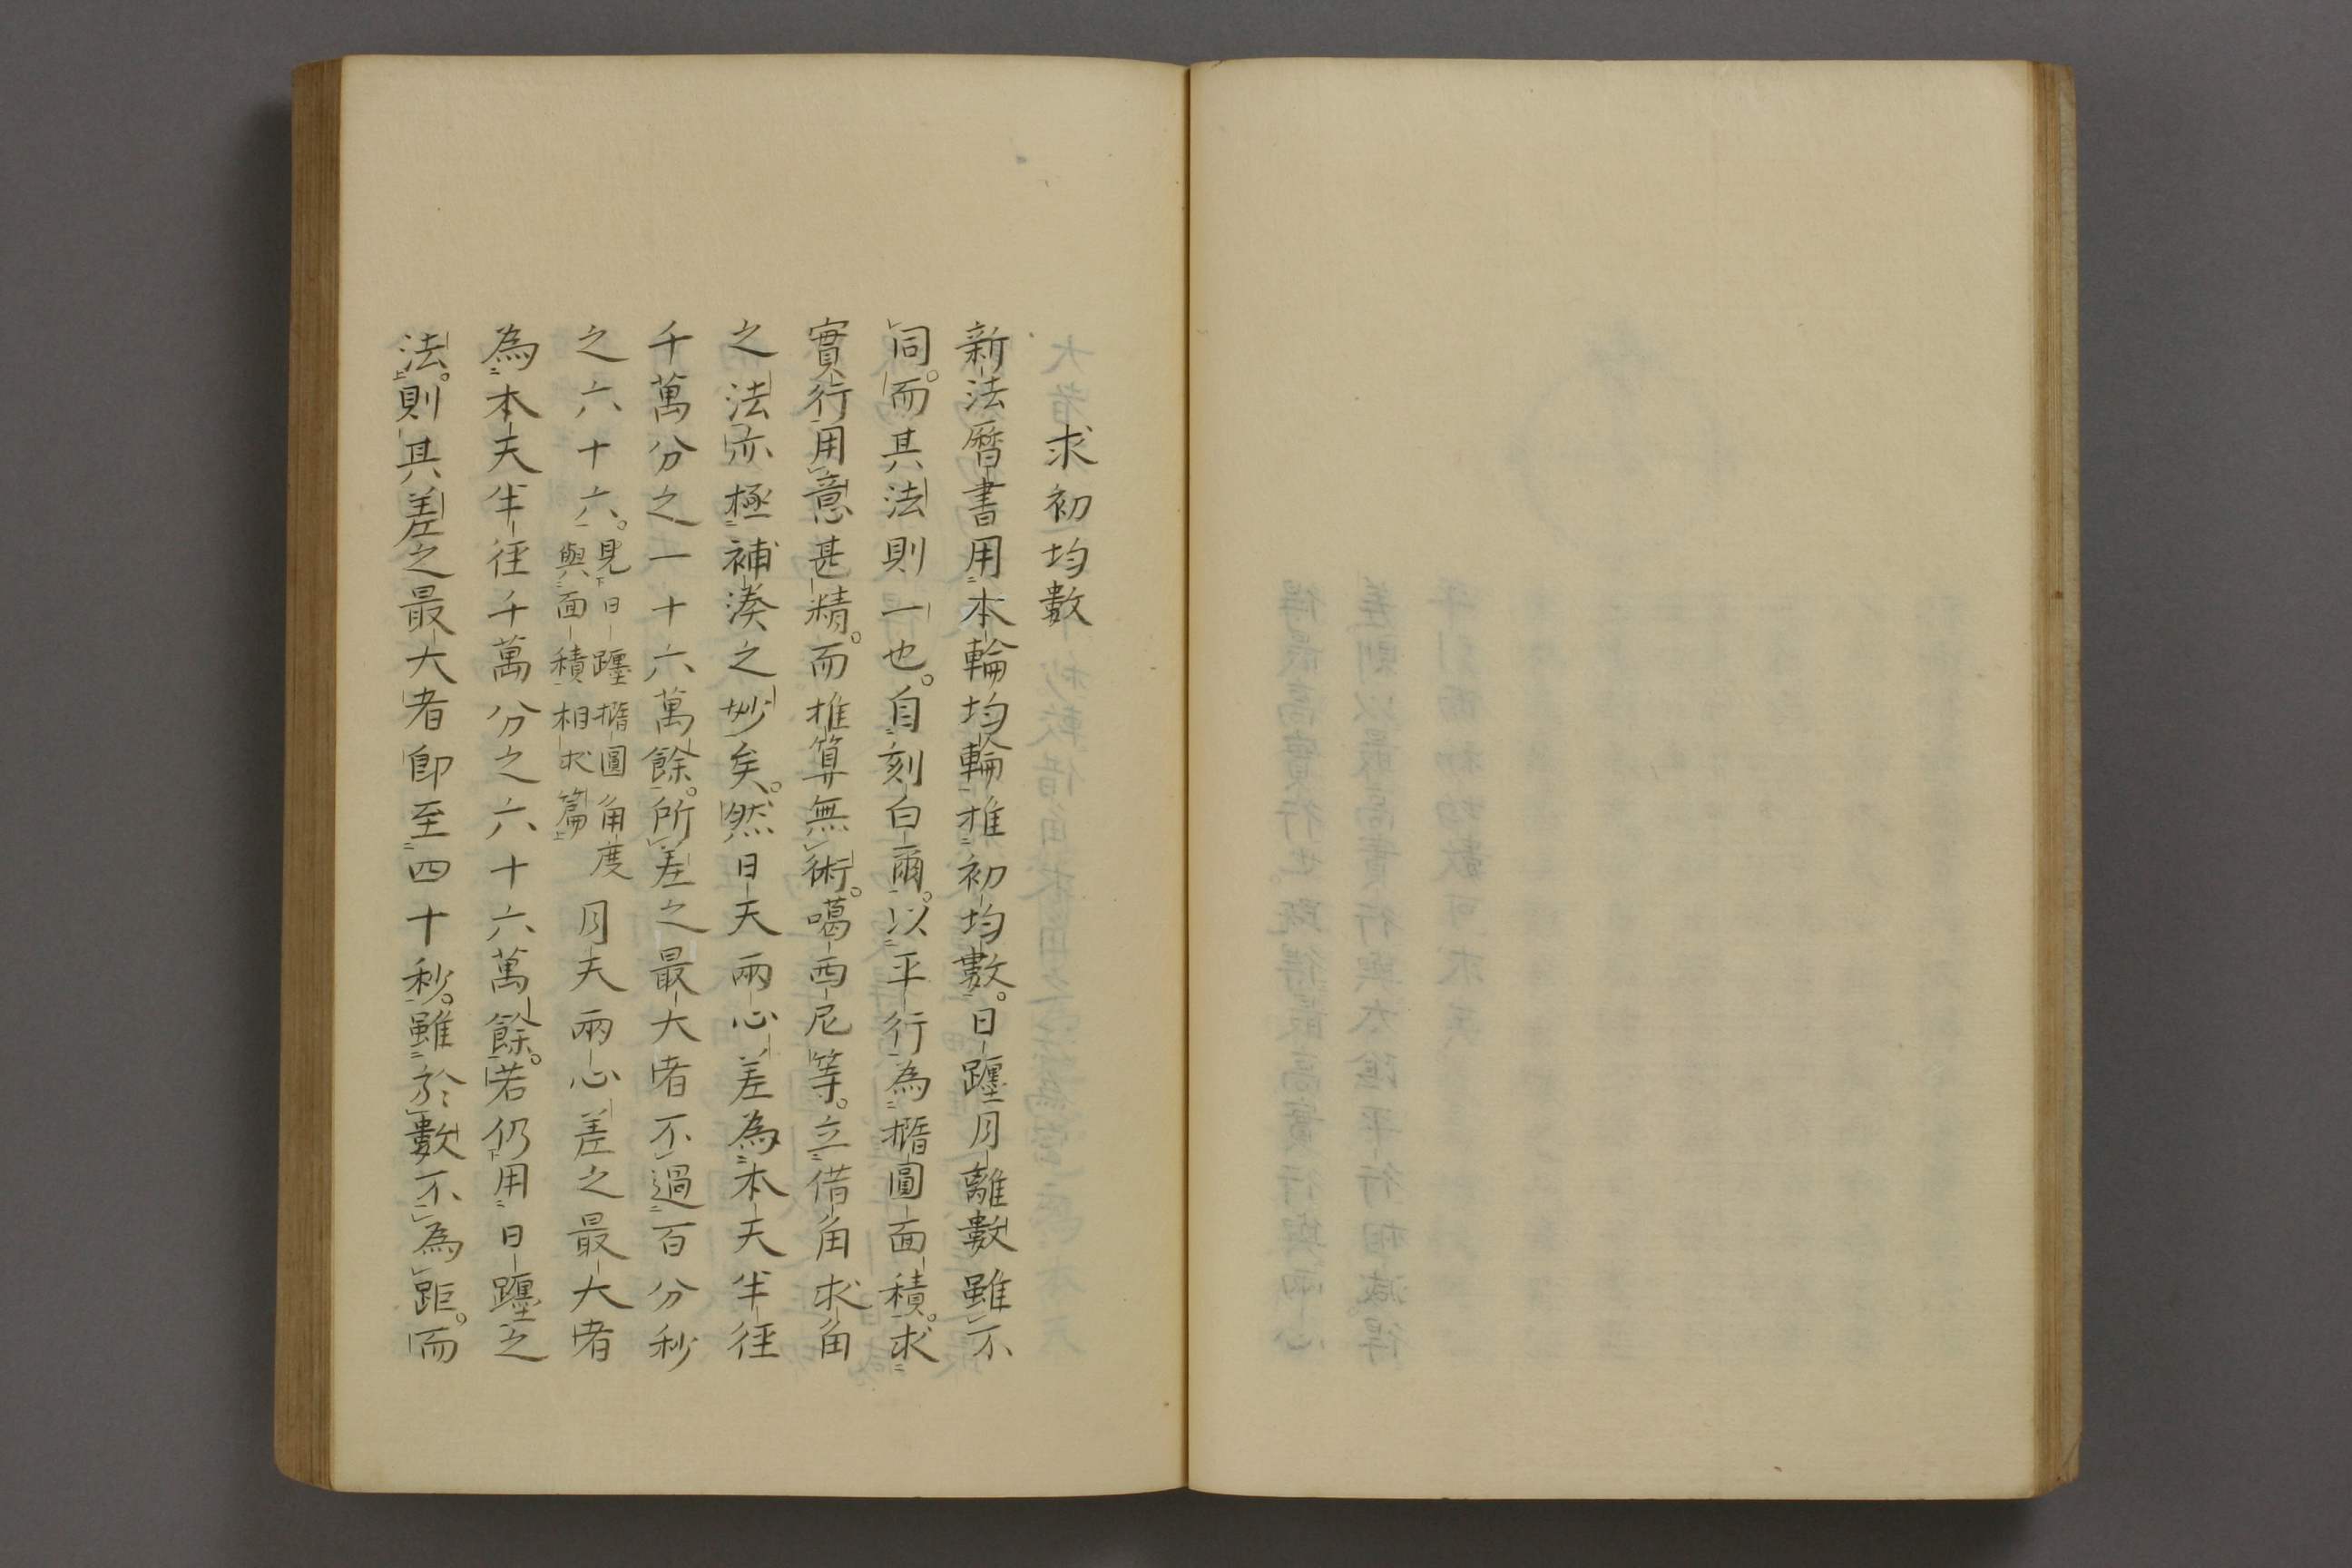 求初均數
新法曆書用本輪均輪推初均數。日躔月離數雖不
同。而其法則一也。自刻白爾。以平行為橢圓面積。求
實行用意甚精。而推算無術。噶西尼等。立借角求角
之法亦極補湊之妙矣。然日天兩心差為本天半徑
千萬分之一十六萬餘。所差之最大者不過百分秒
之六十六。見日躔橢圓角度與面積相求篇月天兩心差之最大者
為本天半徑千萬分之六十六萬餘。若仍用日躔之
法。則其差之最大者卽至四十秒。雖於數不為距。而